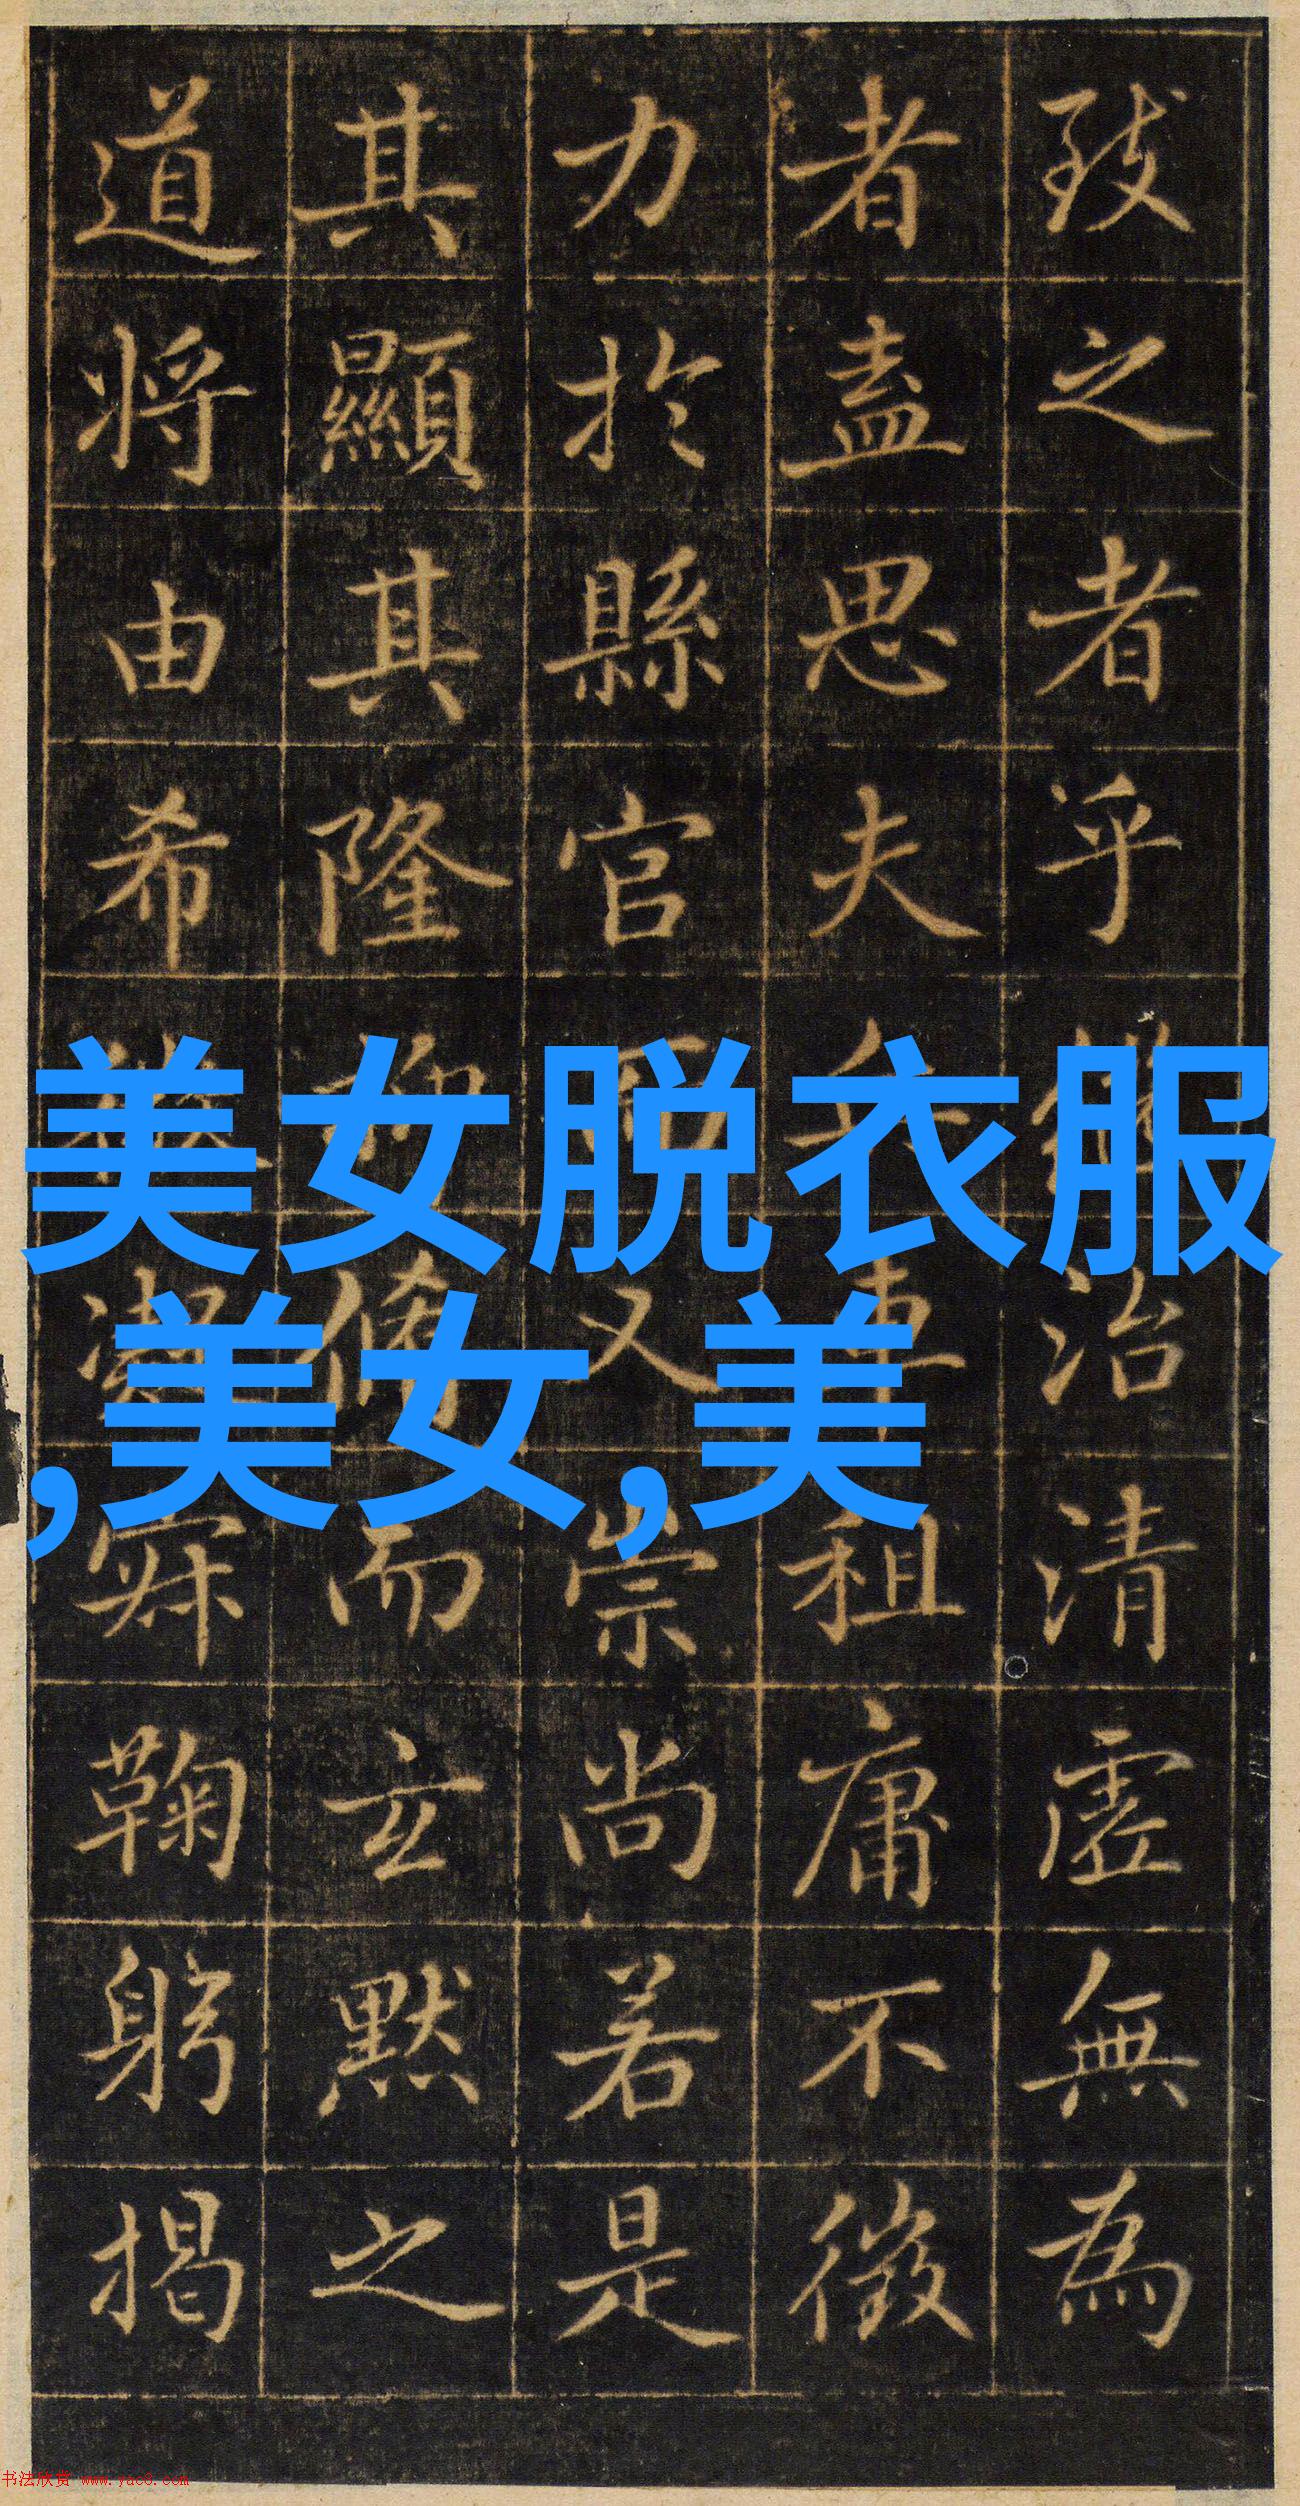 致之者乎治清虛無為
者盍思夫租庸不徵
力於縣官而又崇尚若是
其顯其隆抑脩而玄默之
道將由希寂鞠躬揭
美女脱衣服
,美女,美
书法欣赏 www.yac8.com